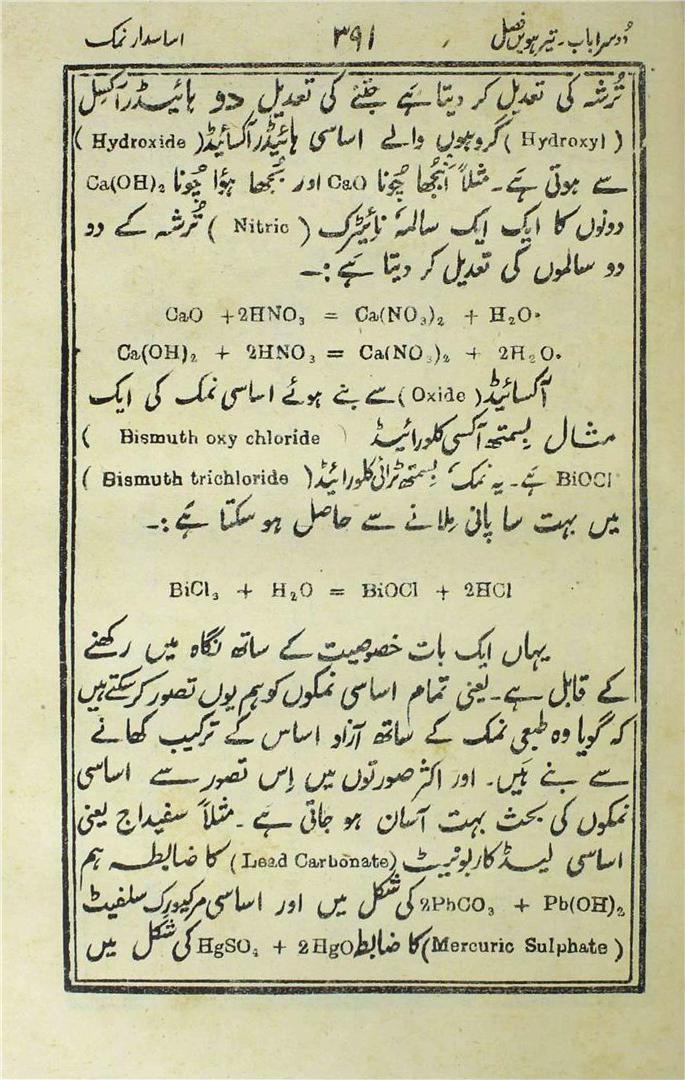 دوسرا باب۔ تیرہویں فصل ۳۹۱ اساسدار نمک
تُرشہ کی تعدیل کر دیتا ہے جتنے کی تعدیل دو ہائیڈرآکسِل
(Hydroxyl) گروہوں والے اساسی ہائیڈرآکسائیڈ (Hydroxide)
سے ہوتی ہے۔ مثلاً اَنبُجھا چُونا CaO اور بُجھا ہؤا چُونا Ca(OH)₂
دونوں کا ایک ایک سالمہ نائیٹرک (Nitric) تُرشہ کے دو
دو سالموں کی تعدیل کر دیتا ہے :—
CaO + 2HNO₃ = Ca(NO₃)₂ + H₂O.
Ca(OH)₂ + 2HNO₃ = Ca(NO₃)₂ + 2H₂O.
آکسائیڈ (Oxide) سے بنے ہوئے اساسی نمک کی ایک
مثال بِسمتھ آکسی کلورائیڈ (Bismuth oxy chloride)
BiOCl ہے۔ یہ نمک، بِسمتھ ٹرائی کلورائیڈ (Bismuth trichloride)
میں بہت سا پانی مِلانے سے حاصل ہو سکتا ہے :—
BiCl₃ + H₂O = BiOCl + 2HCl
یہاں ایک بات خصوصیت کے ساتھ نگاہ میں رکھنے
کے قابل ہے۔ یعنی تمام اساسی نمکوں کو ہم یوں تصور کرسکتے ہیں
کہ گویا وہ طبعی نمک کے ساتھ آزاد اساس کے ترکیب کھانے
سے بنے ہیں۔ اور اکثر صورتوں میں اِس تصور سے اساسی
نمکوں کی بحث بہت آسان ہو جاتی ہے۔ مثلاً سفیداج یعنی
اساسی لیڈ کاربونیٹ (Lead Carbonate) کا ضابطہ ہم
2PbCO₃ + Pb(OH)₂ کی شکل میں اور اساسی مرکیورک سلفیٹ
(Mercuric Sulphate) کا ضابطہ HgSO₄ + 2HgO کی شکل میں